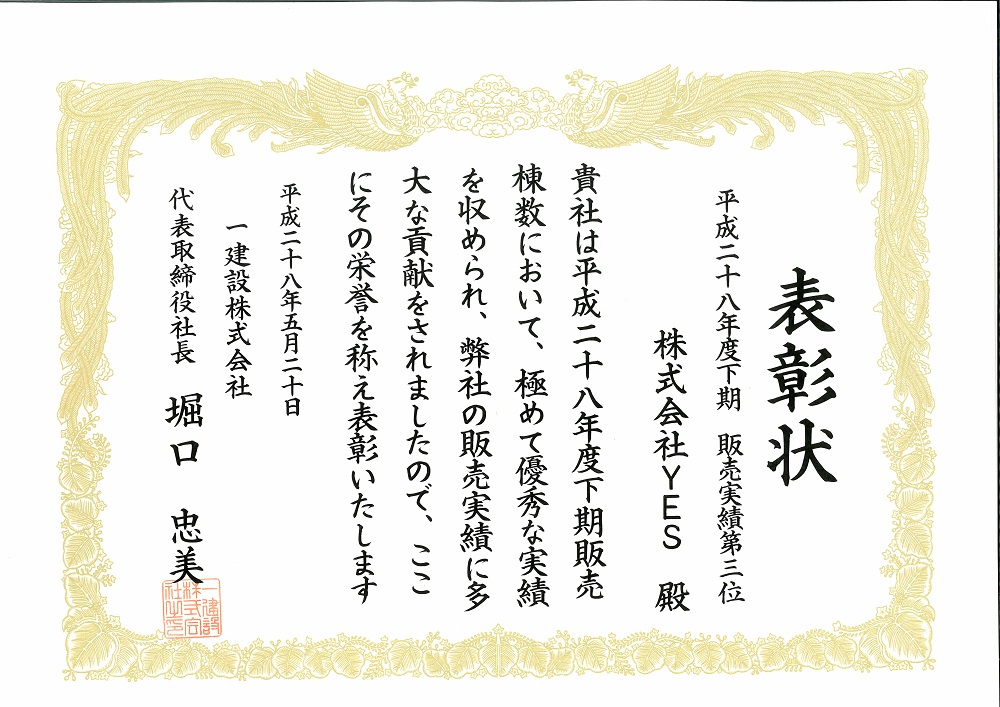 表彰状
平成二十八年度下期　販売実績第三位
株式会社ＹＥＳ　殿
貴社は平成二十八年度下期販売
棟数において、極めて優秀な実績
を収められ、弊社の販売実績に多
大な貢献をされましたので、ここ
にその栄誉を称え表彰いたします
平成二十八年五月二十日
一建設株式会社
代表取締役社長　堀口　忠美
一建設
株式会
社之印